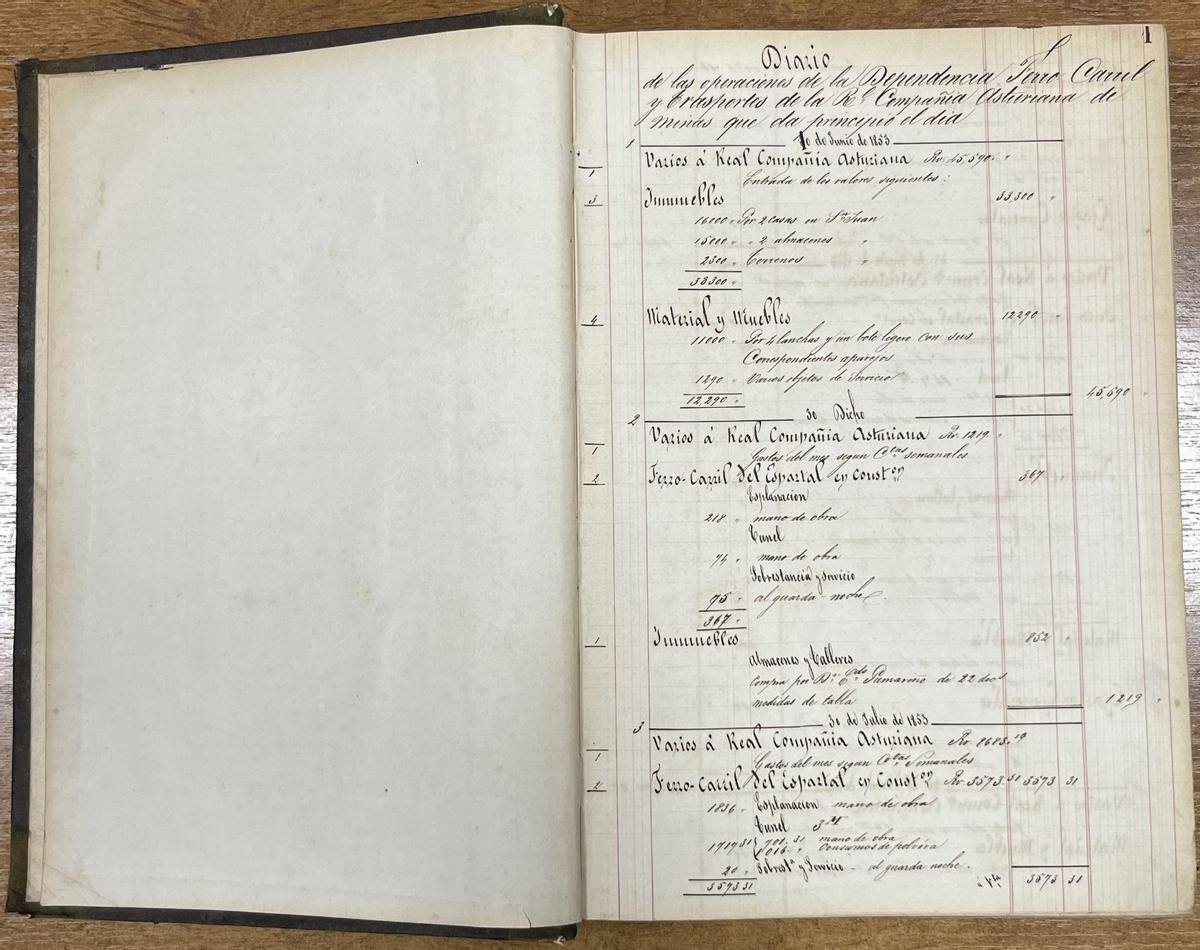 1
Diario
de las operaciones de la Dependencia Ferro Carril
y trasportes de la Rl. Compañia Asturiana de
Minas que da principio el dia
1 10 de Junio de 1853
1 Varios á Real Compañia Asturiana Rv. 45,590. "
Entrada de los valores siguientes:
3 Inmuebles 33,300 "
16000 " Por 2 casas en Sn. Juan
15000 " " 2 almacenes "
2300 " terrenos "
33300 "
4 Material y Muebles 12290 "
11000 " Por 4 lanchas y un bote ligero con sus
Correspondientes aparejos
1290 " Varios objetos de Servicio
12,290 " 45,590 "
2 30 Dicho
1 Varios á Real Compañia Asturiana Rv. 1219. "
Gastos del mes segun Ctas. semanales
2 Ferro-Carril del Espartal en Conston 367
Esplanacion
218 " mano de obra
Tunel
74 " mano de obra
Sobrestancia y servicio
75 " al guarda-noche.
367 "
1 Inmuebles 852 "
Almacenes y Talleres
compra por Dn. Edo. Pumariño de 22 docs
medidas de tabla 1219 "
3 30 de Julio de 1853
1 Varios á Real Compañia Asturiana Rv. 8683.19
Gastos del mes segun Ctas. Semanales
2 Ferro-Carril del Espartal en Conston Rv. 3573.31 3573 31
1836 " Esplanacion mano de obra
Tunel
1717 31 701.31 mano de obra
1016 " Consumos de polvora
20 " Sobresta y Servicio al guarda noche.
3573 31 á fta 3573 31